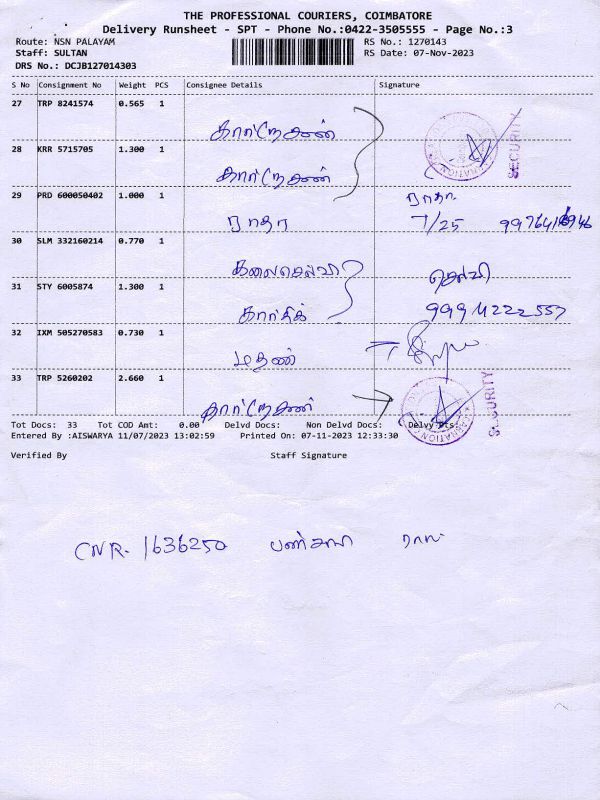 THE PROFESSIONAL COURIERS, COIMBATORE
Delivery Runsheet - SPT - Phone No.:0422-3505555 - Page No.:3
Route: NSN PALAYAM RS No.: 1270143
Staff: SULTAN RS Date: 07-Nov-2023
DRS No.: DCJB127014303
S No Consignment No Weight PCS Consignee Details Signature
27 TRP 8241574 0.565 1
SECURITY
28 KRR 5715705 1.300 1
29 PRD 600050402 1.000 1 ராதா
ராதா 7/25
30 SLM 332160214 0.770 1
கலைசெல்வி செல்வி
31 STY 6005874 1.300 1
கார்திக் 9994222557
32 IXM 505270583 0.730 1
மதன்
33 TRP 5260202 2.660 1
SECURITY
Tot Docs: 33 Tot COD Amt: 0.00 Delvd Docs: Non Delvd Docs: Delvy Pts:
Entered By :AISWARYA 11/07/2023 13:02:59 Printed On: 07-11-2023 12:33:30
Verified By Staff Signature
CNR. 1636250